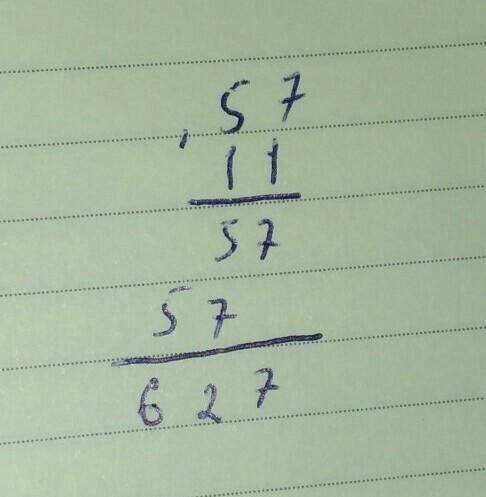 , 57
11
57
57
627